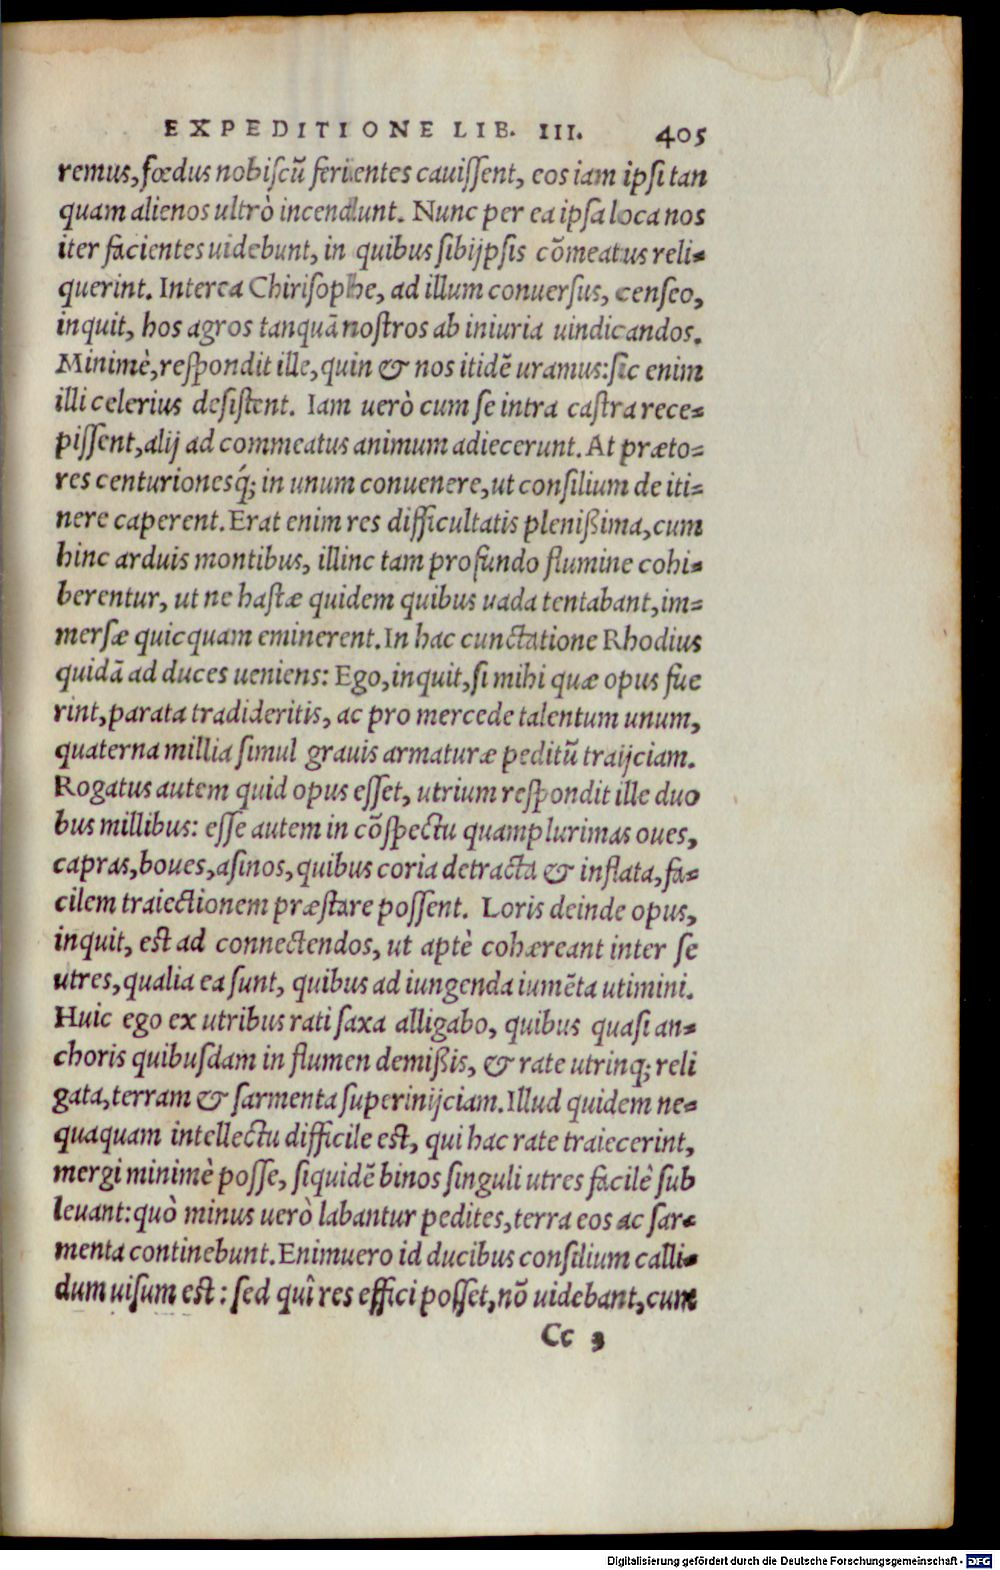 EXPEDITIONE LIB. III. 405
remus, fœdus nobiscũ ferientes cauissent, eos iam ipsi tan
quam alienos ultrò incendunt. Nunc per ea ipsa loca nos
iter facientes uidebunt, in quibus sibijpsis cõmeatus reli-
querint. Interea Chirisophe, ad illum conuersus, censeo,
inquit, hos agros tanquã nostros ab iniuria uindicandos.
Minimè, respondit ille, quin & nos itidẽ uramus: sic enim
illi celerius desistent. Iam uerò cum se intra castra rece-
pissent, alij ad commeatus animum adiecerunt. At præto-
res centurionesq́; in unum conuenere, ut consilium de iti-
nere caperent. Erat enim res difficultatis plenißima, cum
hinc arduis montibus, illinc tam profundo flumine cohi-
berentur, ut ne hastæ quidem quibus uada tentabant, im-
mersæ quicquam eminerent. In hac cunctatione Rhodius
quidã ad duces ueniens: Ego, inquit, si mihi quæ opus fue
rint, parata tradideritis, ac pro mercede talentum unum,
quaterna millia simul grauis armaturæ peditũ traijciam.
Rogatus autem quid opus esset, utrium respondit ille duo
bus millibus: esse autem in cõspectu quamplurimas oues,
capras, boues, asinos, quibus coria detracta & inflata, fa-
cilem traiectionem præstare possent. Loris deinde opus,
inquit, est ad connectendos, ut aptè cohæreant inter se
utres, qualia ea sunt, quibus ad iungenda iumẽta utimini.
Huic ego ex utribus rati saxa alligabo, quibus quasi an-
choris quibusdam in flumen demißis, & rate utrinq; reli
gata, terram & sarmenta superinijciam. Illud quidem ne-
quaquam intellectu difficile est, qui hac rate traiecerint,
mergi minimè posse, siquidẽ binos singuli utres facilè sub
leuant: quò minus uerò labantur pedites, terra eos ac sar-
menta continebunt. Enimuero id ducibus consilium calli-
dum uisum est: sed quî res effici posset, nõ uidebant, cum
Cc 3
Digitalisierung gefördert durch die Deutsche Forschungsgemeinschaft - DFG